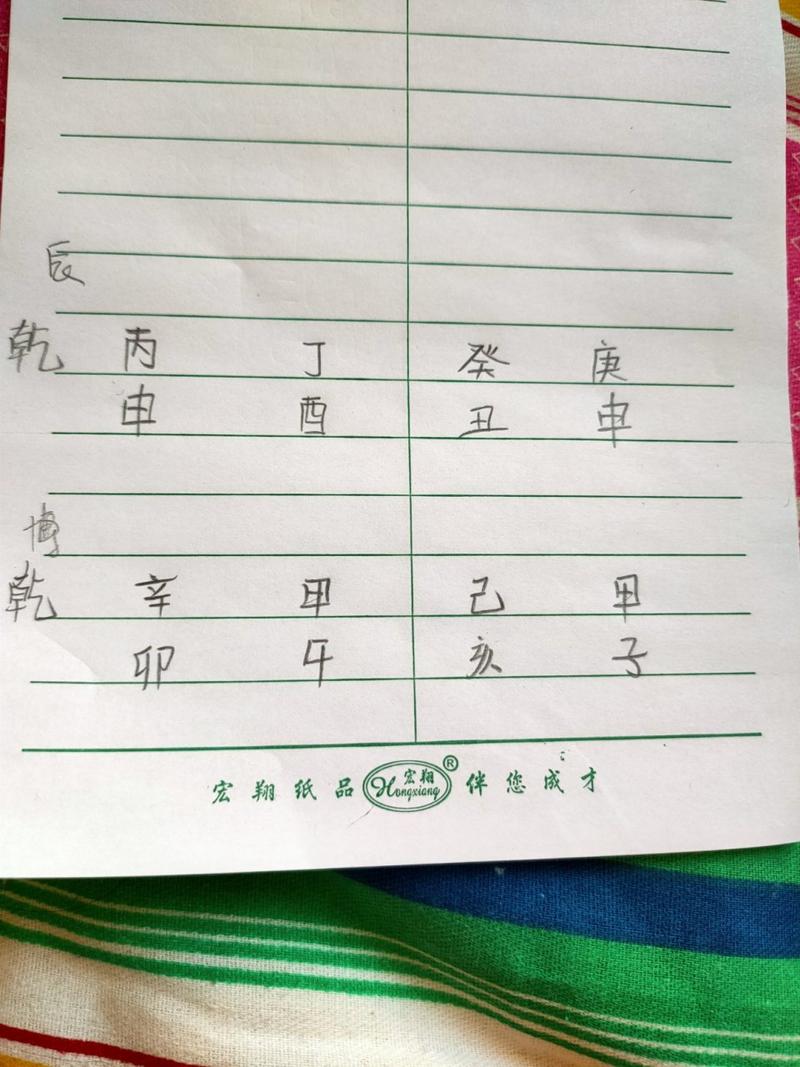 辰
乾 丙 丁 癸 庚
申 酉 丑 申
博
乾 辛 甲 己 甲
卯 午 亥 子
宏翔纸品 宏翔 Hongxiang ® 伴您成才